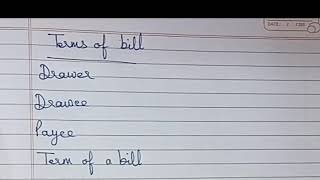 Terms of bill
Drawer
Drawee
Payee
Term of a bill